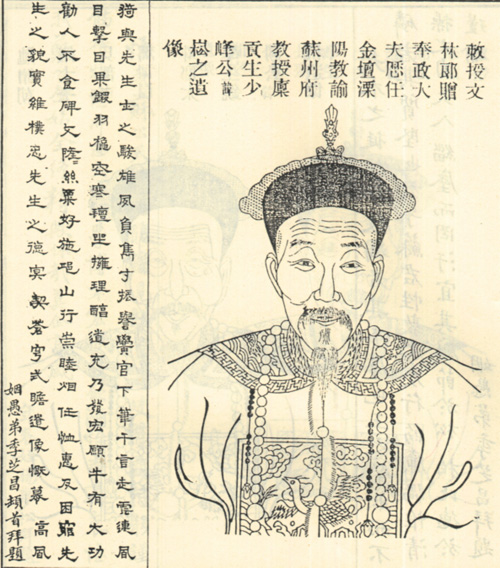 敕授文
林郎贈
奉政大
夫厯任
金壇溧
陽教諭
蘇州府
教授廩
貢生少
峰公諱
之遺
像
猗與先生士之駿雄夙負雋才振譽黌宮下筆千言走電連風
目擊果羽空寒坐擁理醰道充乃發宏願牛有大功
勸人不食碑文絲粟好施山行崇睦姻任恤惠及困窮先
生之貌實維樸忠先生之德寔契蒼穹式瞻遺像慨慕高風
姻愚弟季芝昌頓首拜題